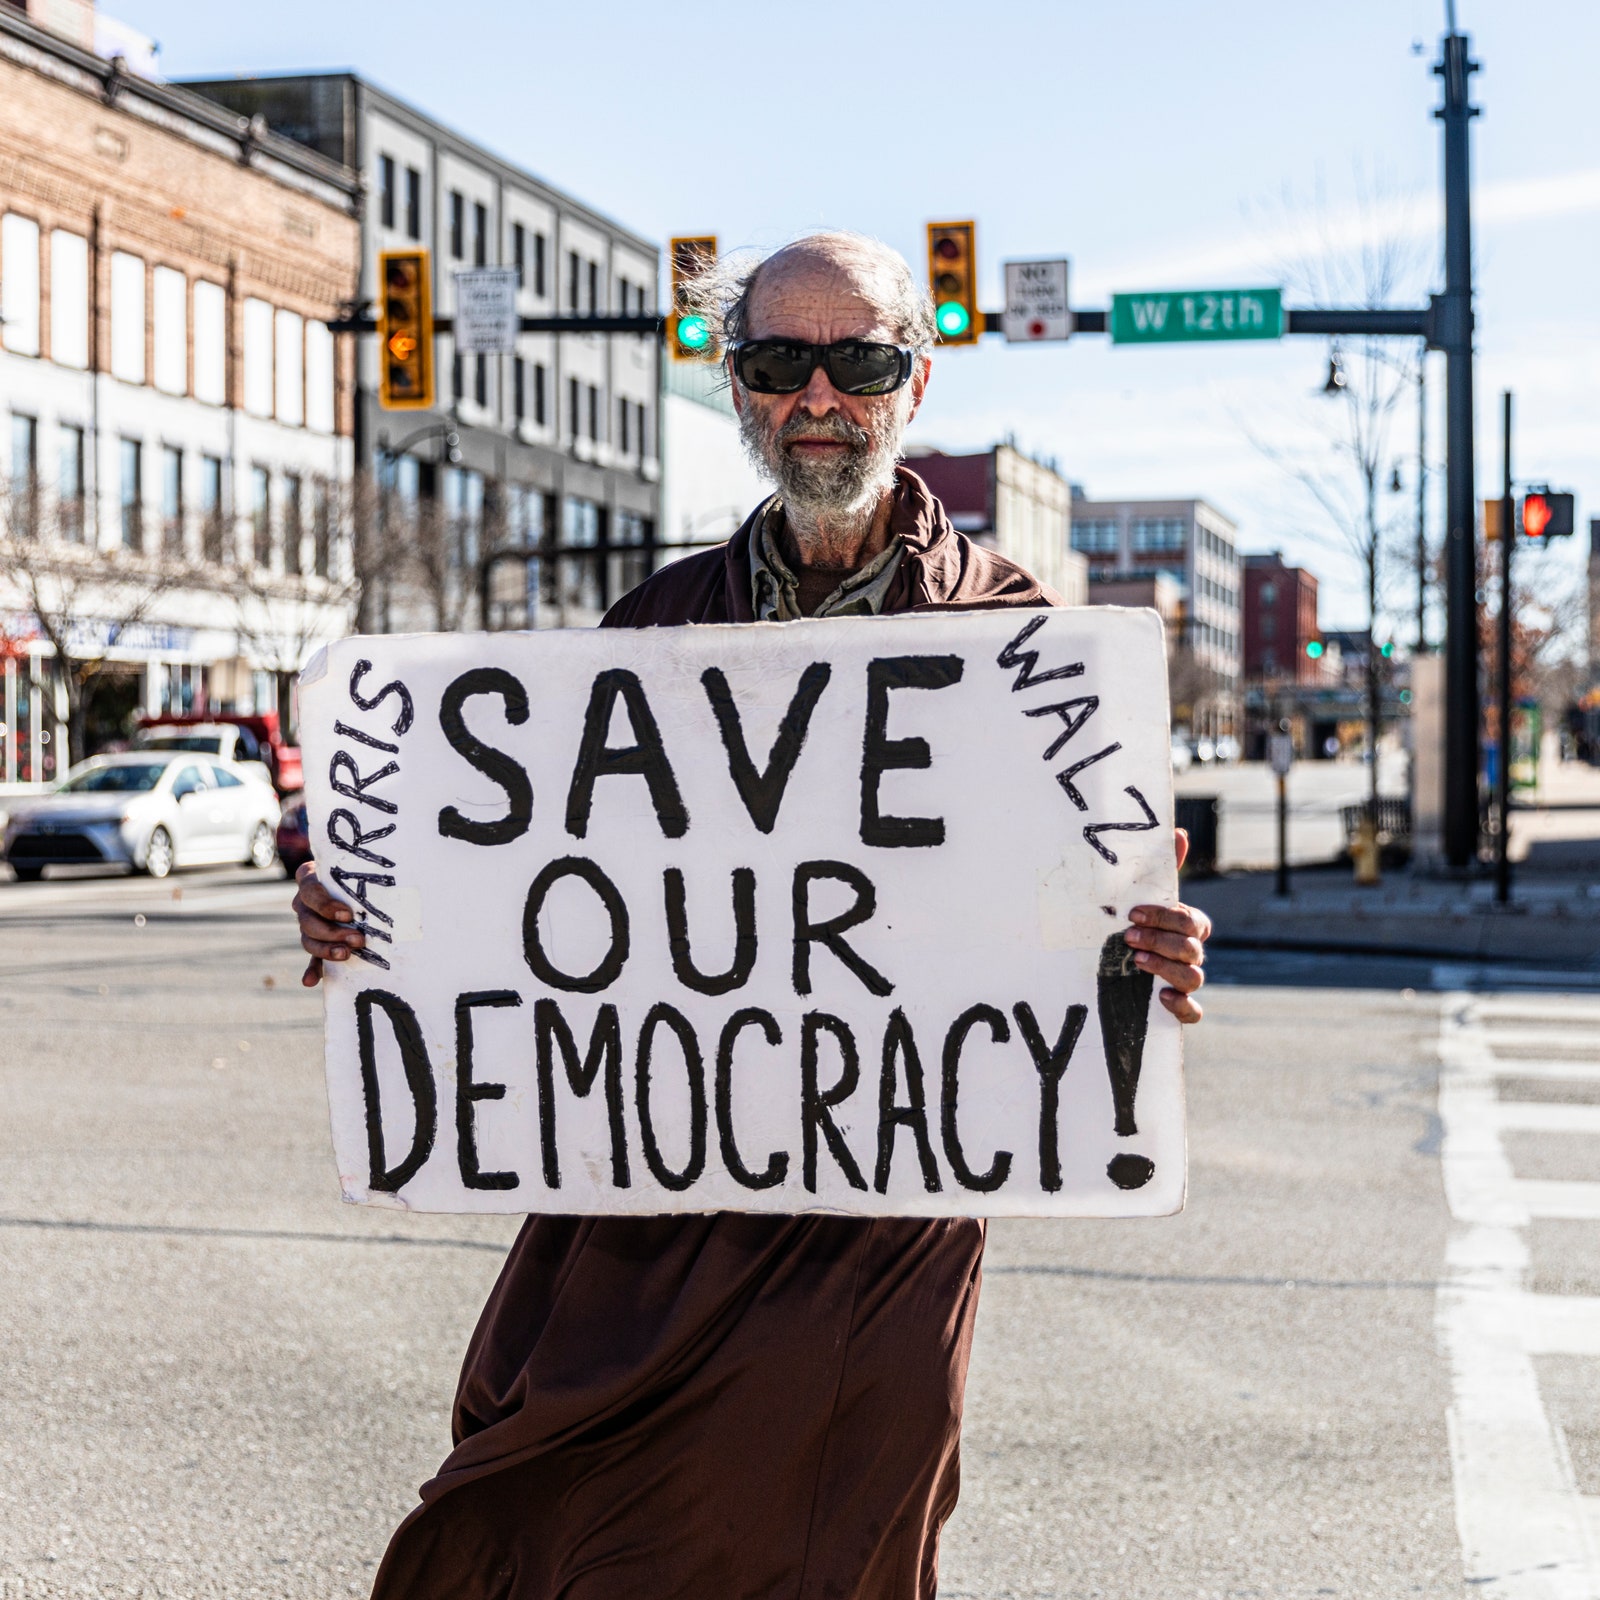 W 12th
NO
TURN
ON RED
HARRIS
SAVE
WALZ
OUR
DEMOCRACY!